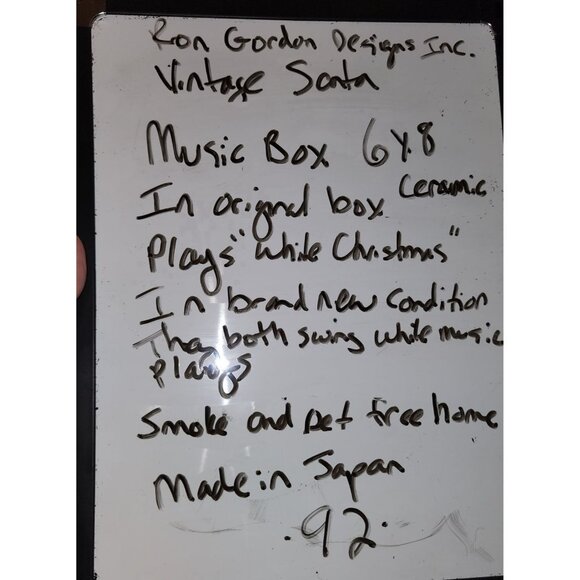 Ron Gordon Designs Inc.
Vintage Santa
Music Box 6x8
Ceramic
In original box
Plays "White Christmas"
In brand new condition
They both swing while music
plays
Smoke and pet free home
Made in Japan
.92.